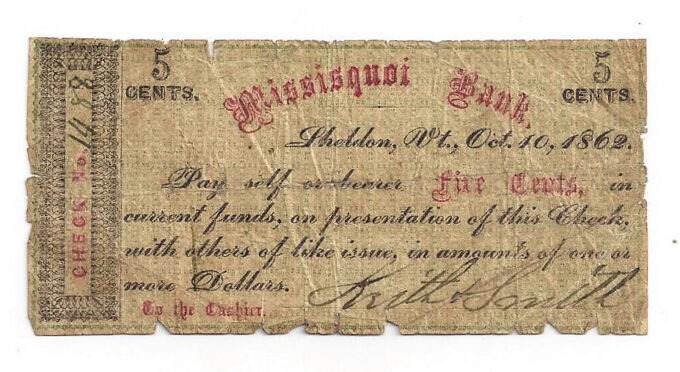 5 CENTS.
Missisquoi Bank,
5 CENTS.
Sheldon, Vt., Oct. 10, 1862.
Pay self or bearer Five Cents, in
current funds, on presentation of this Check,
with others of like issue, in amounts of one or
more Dollars.
Keith & Smith
To the Cashier.
CHECK No. 1488